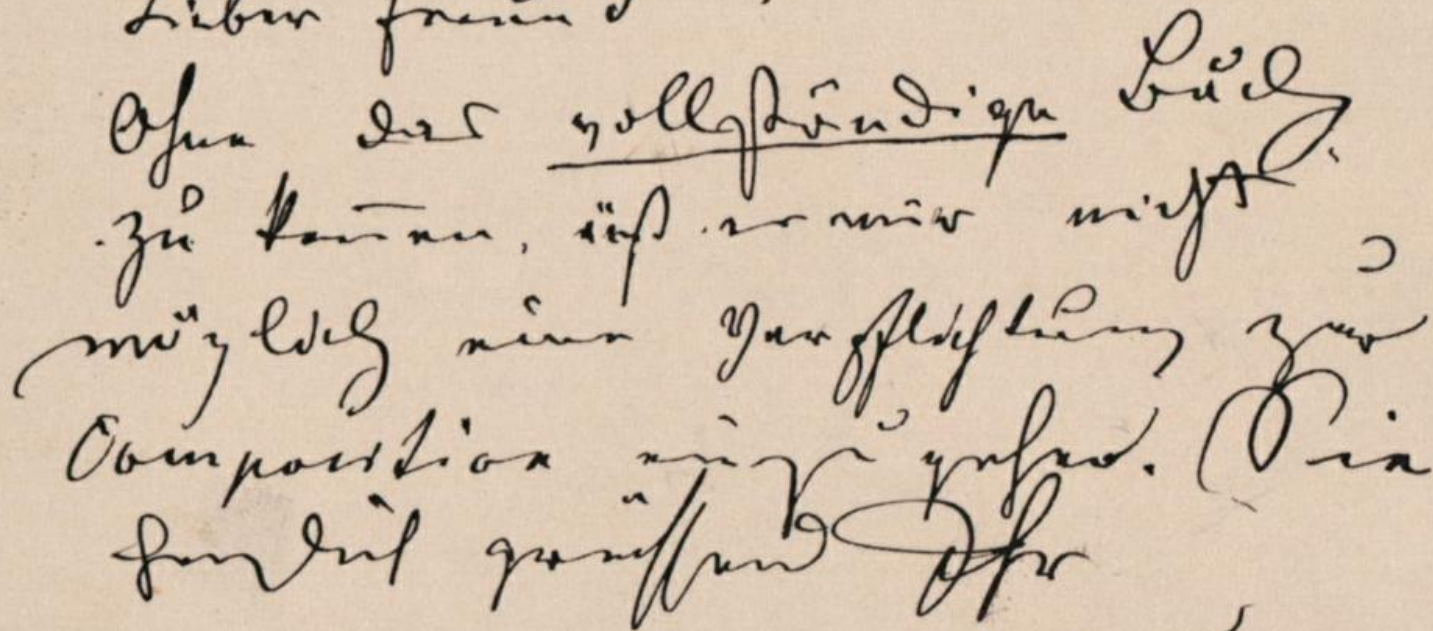 Lieber Freund
Ohne das vollständige Buch
zu kennen, ist es mir nicht
möglich eine Verpflichtung zur
Composition einzugehen. Sie
herzlich grüssend Ihr